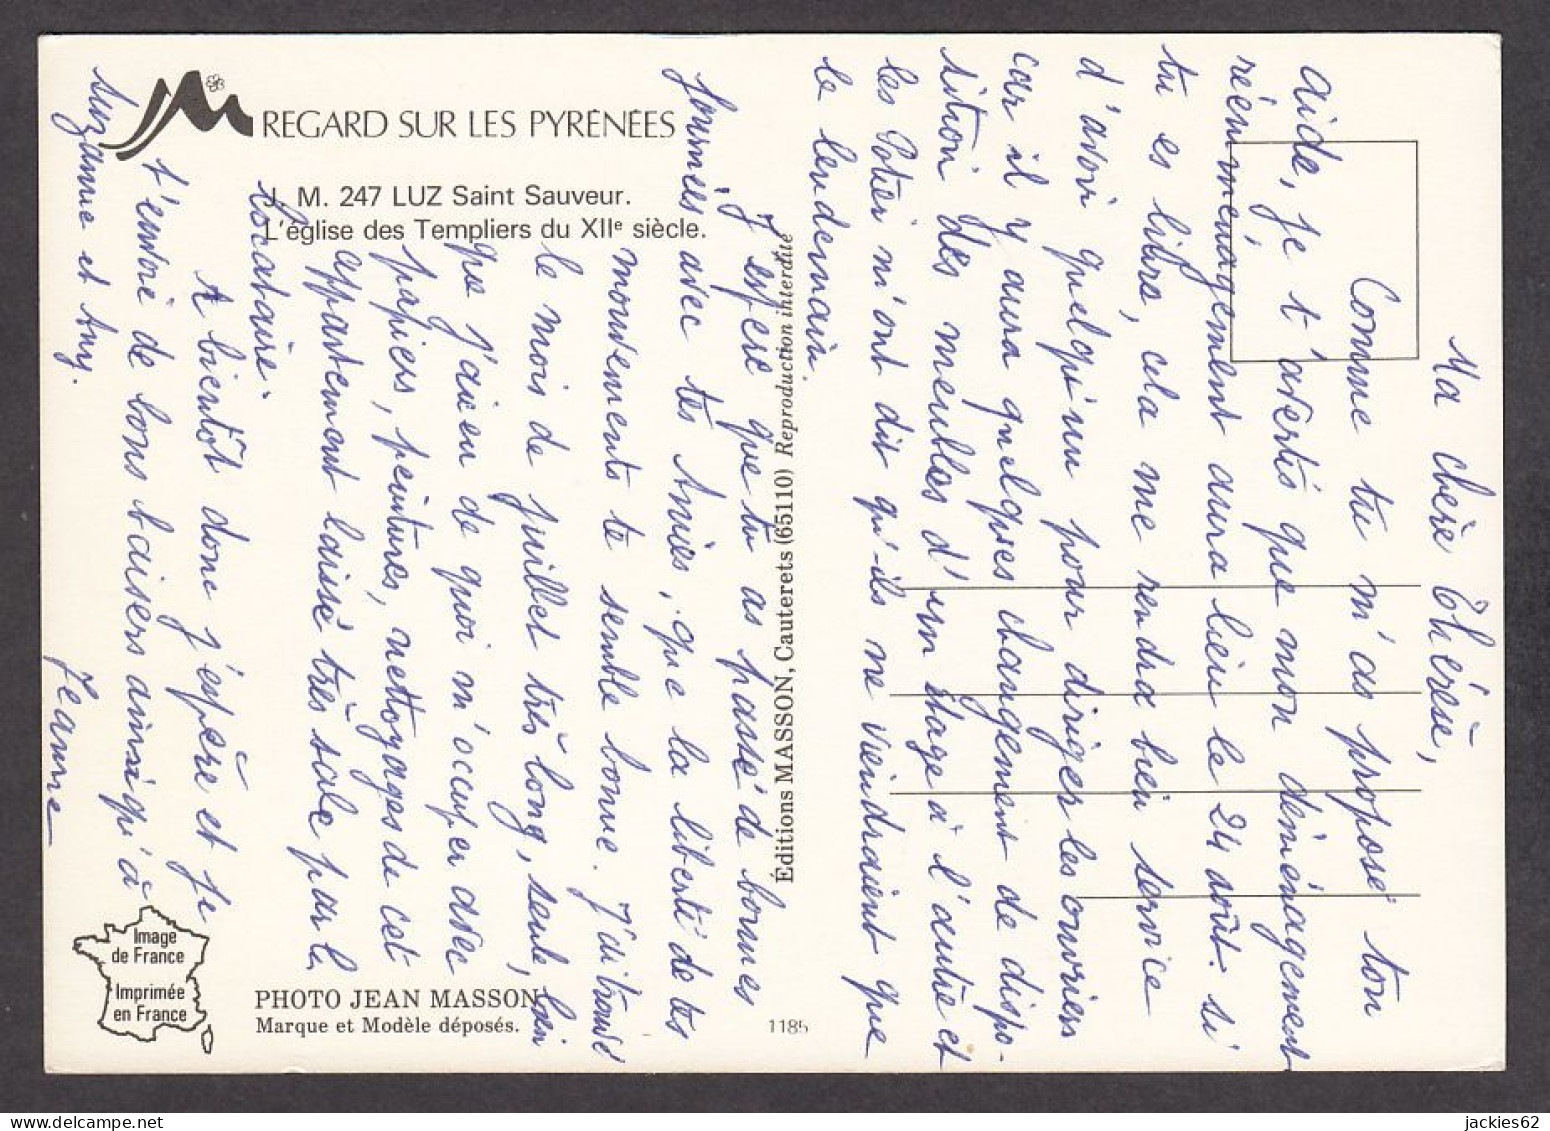 REGARD SUR LES PYRÉNÉES
J. M. 247 LUZ Saint Sauveur.
L'église des Templiers du XIIe siècle.
Éditions MASSON, Cauterets (65110) Reproduction interdite
Image
de France
Imprimée
en France
PHOTO JEAN MASSON
Marque et Modèle déposés.
1185
Ma chère Thérèse,
Comme tu m'as proposé ton
aide, je t'avertis que mon déménagement
réemménagement aura lieu le 24 août. si
tu es libre, cela me rendra bien service
d'avoir quelqu'un pour diriger les ouvriers
car il y aura quelques changement de dispo-
sition des meubles d'un étage à l'autre et
les Potier m'ont dit qu'ils ne viendraient que
le lendemain.
J'espère que tu as passé de bonnes
journées avec tes Amies, que la liberté de tes
mouvements te semble bonne. J'ai trouvé
le mois de juillet très long, seule, bien
que j'ai eu de quoi m'occuper avec
papiers, peintures, nettoyages de cet
appartement laissé très sale par le
locataire.
A bientôt donc j'espère et je
t'envoie de bons baisers ainsi qu'à
suzanne et Any.
Jeanne
jackies62